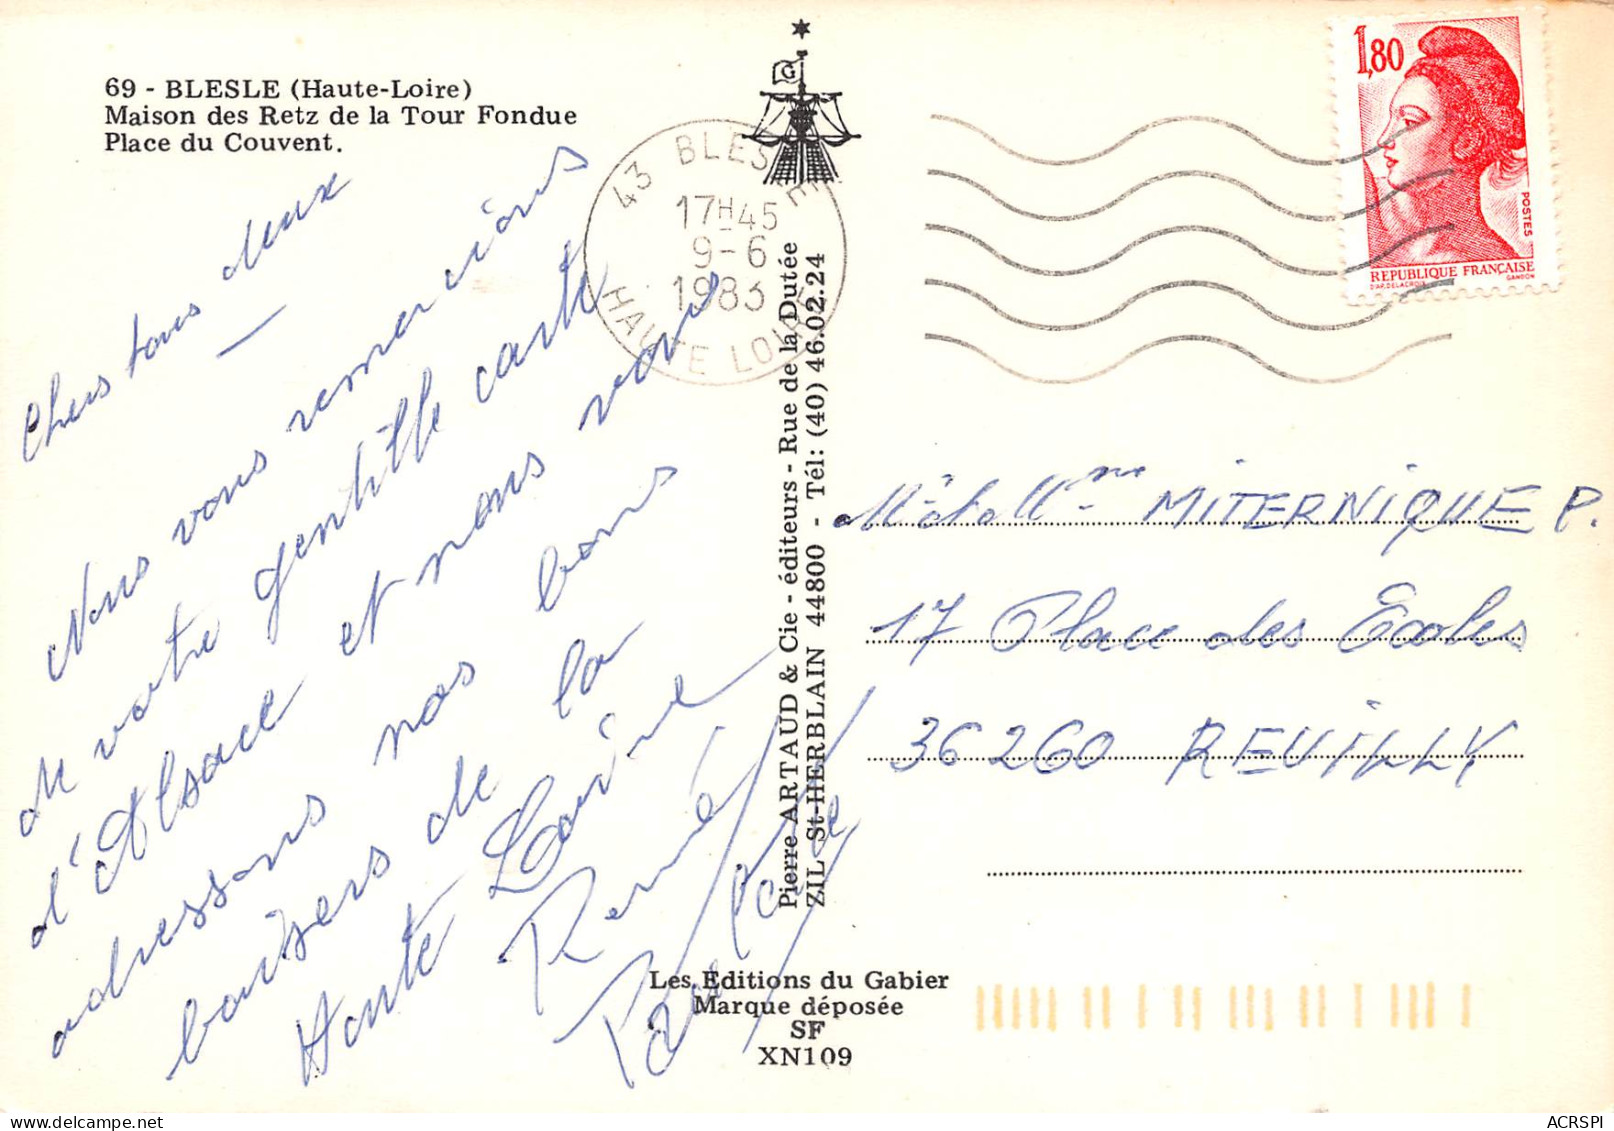 69 - BLESLE (Haute-Loire)
Maison des Retz de la Tour Fondue
Place du Couvent.
Chers tous deux
Nous vous remercions
de votre gentille carte
d'Alsace et nous vous
adressons nos bons
baisers de la
Haute Loire
René
Paulette
43 BLESLE
17H45
9-6
1983
HAUTE LOIRE
Pierre ARTAUD & Cie - éditeurs - Rue de la Dutée
ZIL St-HERBLAIN 44800 - Tél: (40) 46.02.24
Les Editions du Gabier
Marque déposée
SF
XN109
1,80
POSTES
REPUBLIQUE FRANÇAISE
D'AP. DELACROIX GANDON
Mr et Mme MITERNIQUE P.
17 Place des Ecoles
36260 REUILLY
ACRSPI